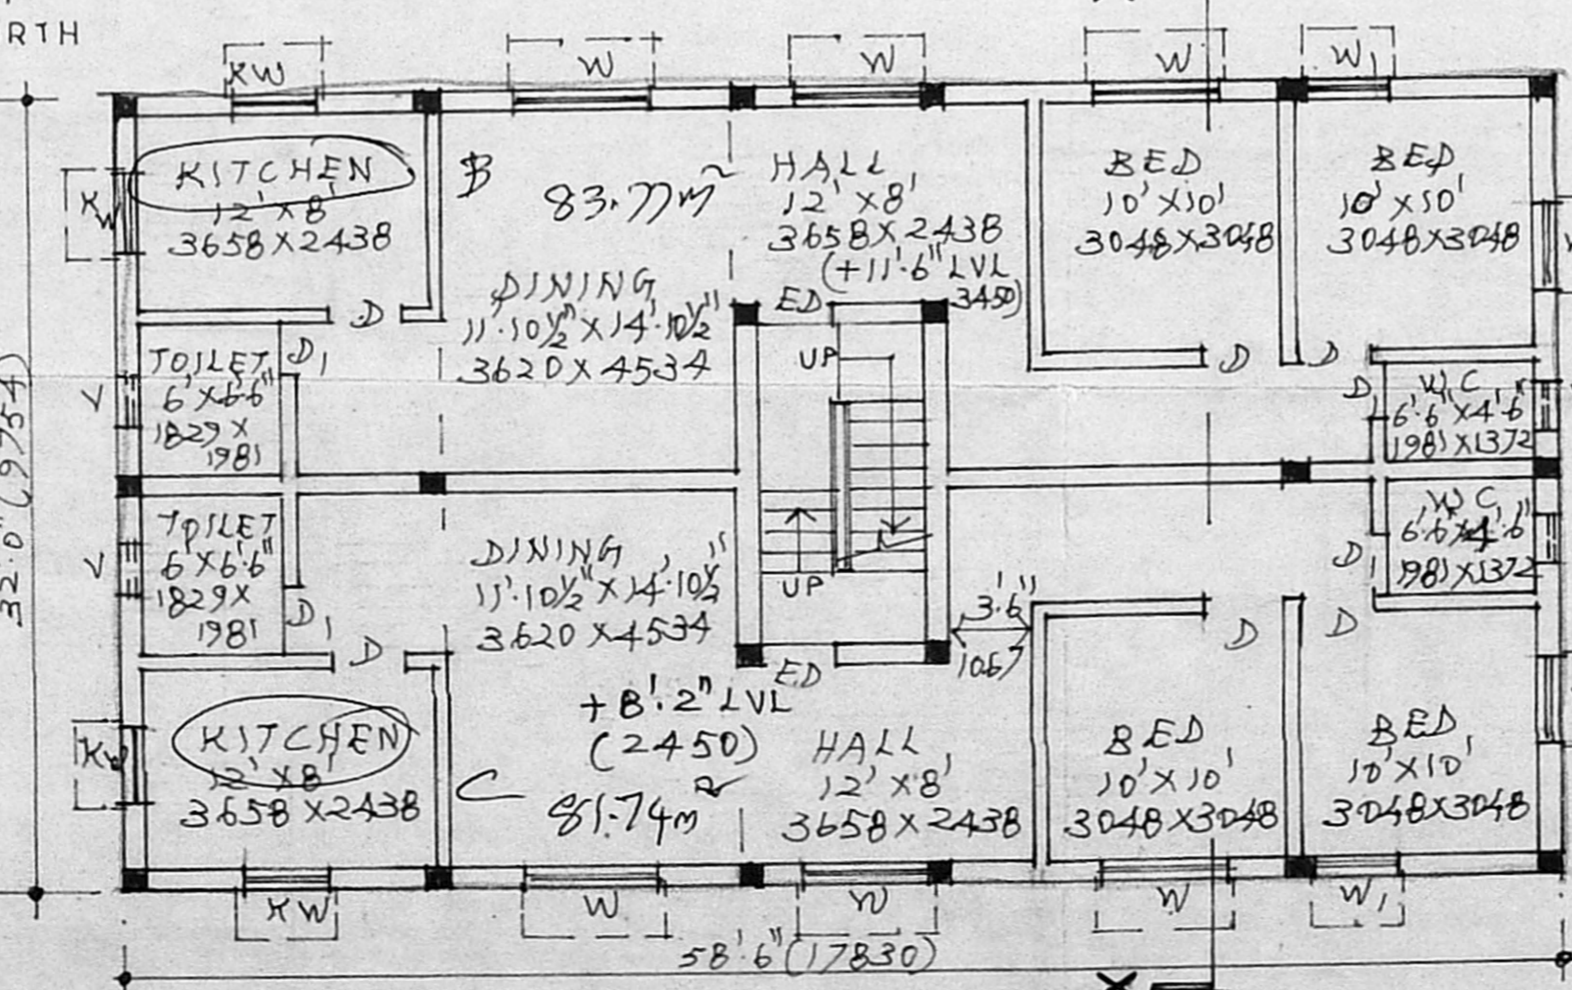 RTH
KW
W
W
W
W1
KITCHEN
12' X 8'
3658 X 2438
KW
B
83.77m²
HALL
12' X 8'
3658 X 2438
(+11'.6" LVL
3450)
BED
10' X 10'
3048 X 3048
BED
10' X 10'
3048 X 3048
DINING
11'.10½" X 14'.10½"
3620 X 4534
ED
UP
D
D
D
TOILET
6' X 6'.6"
1829 X
1981
D1
V
D1
W.C
6'.6" X 4'.6"
1981 X 1372
32'.0" (9754)
TOILET
6' X 6'.6"
1829 X
1981
D1
V
DINING
11'.10½" X 14'.10½"
3620 X 4534
UP
3'.6"
1067
W.C
6'.6" X 4'.6"
1981 X 1372
D1
D
D
D
ED
+8'.2" LVL
(2450)
KITCHEN
12' X 8'
3658 X 2438
KW
C
81.74m²
HALL
12' X 8'
3658 X 2438
BED
10' X 10'
3048 X 3048
BED
10' X 10'
3048 X 3048
KW
W
W
W
W1
58'.6" (17830)
X